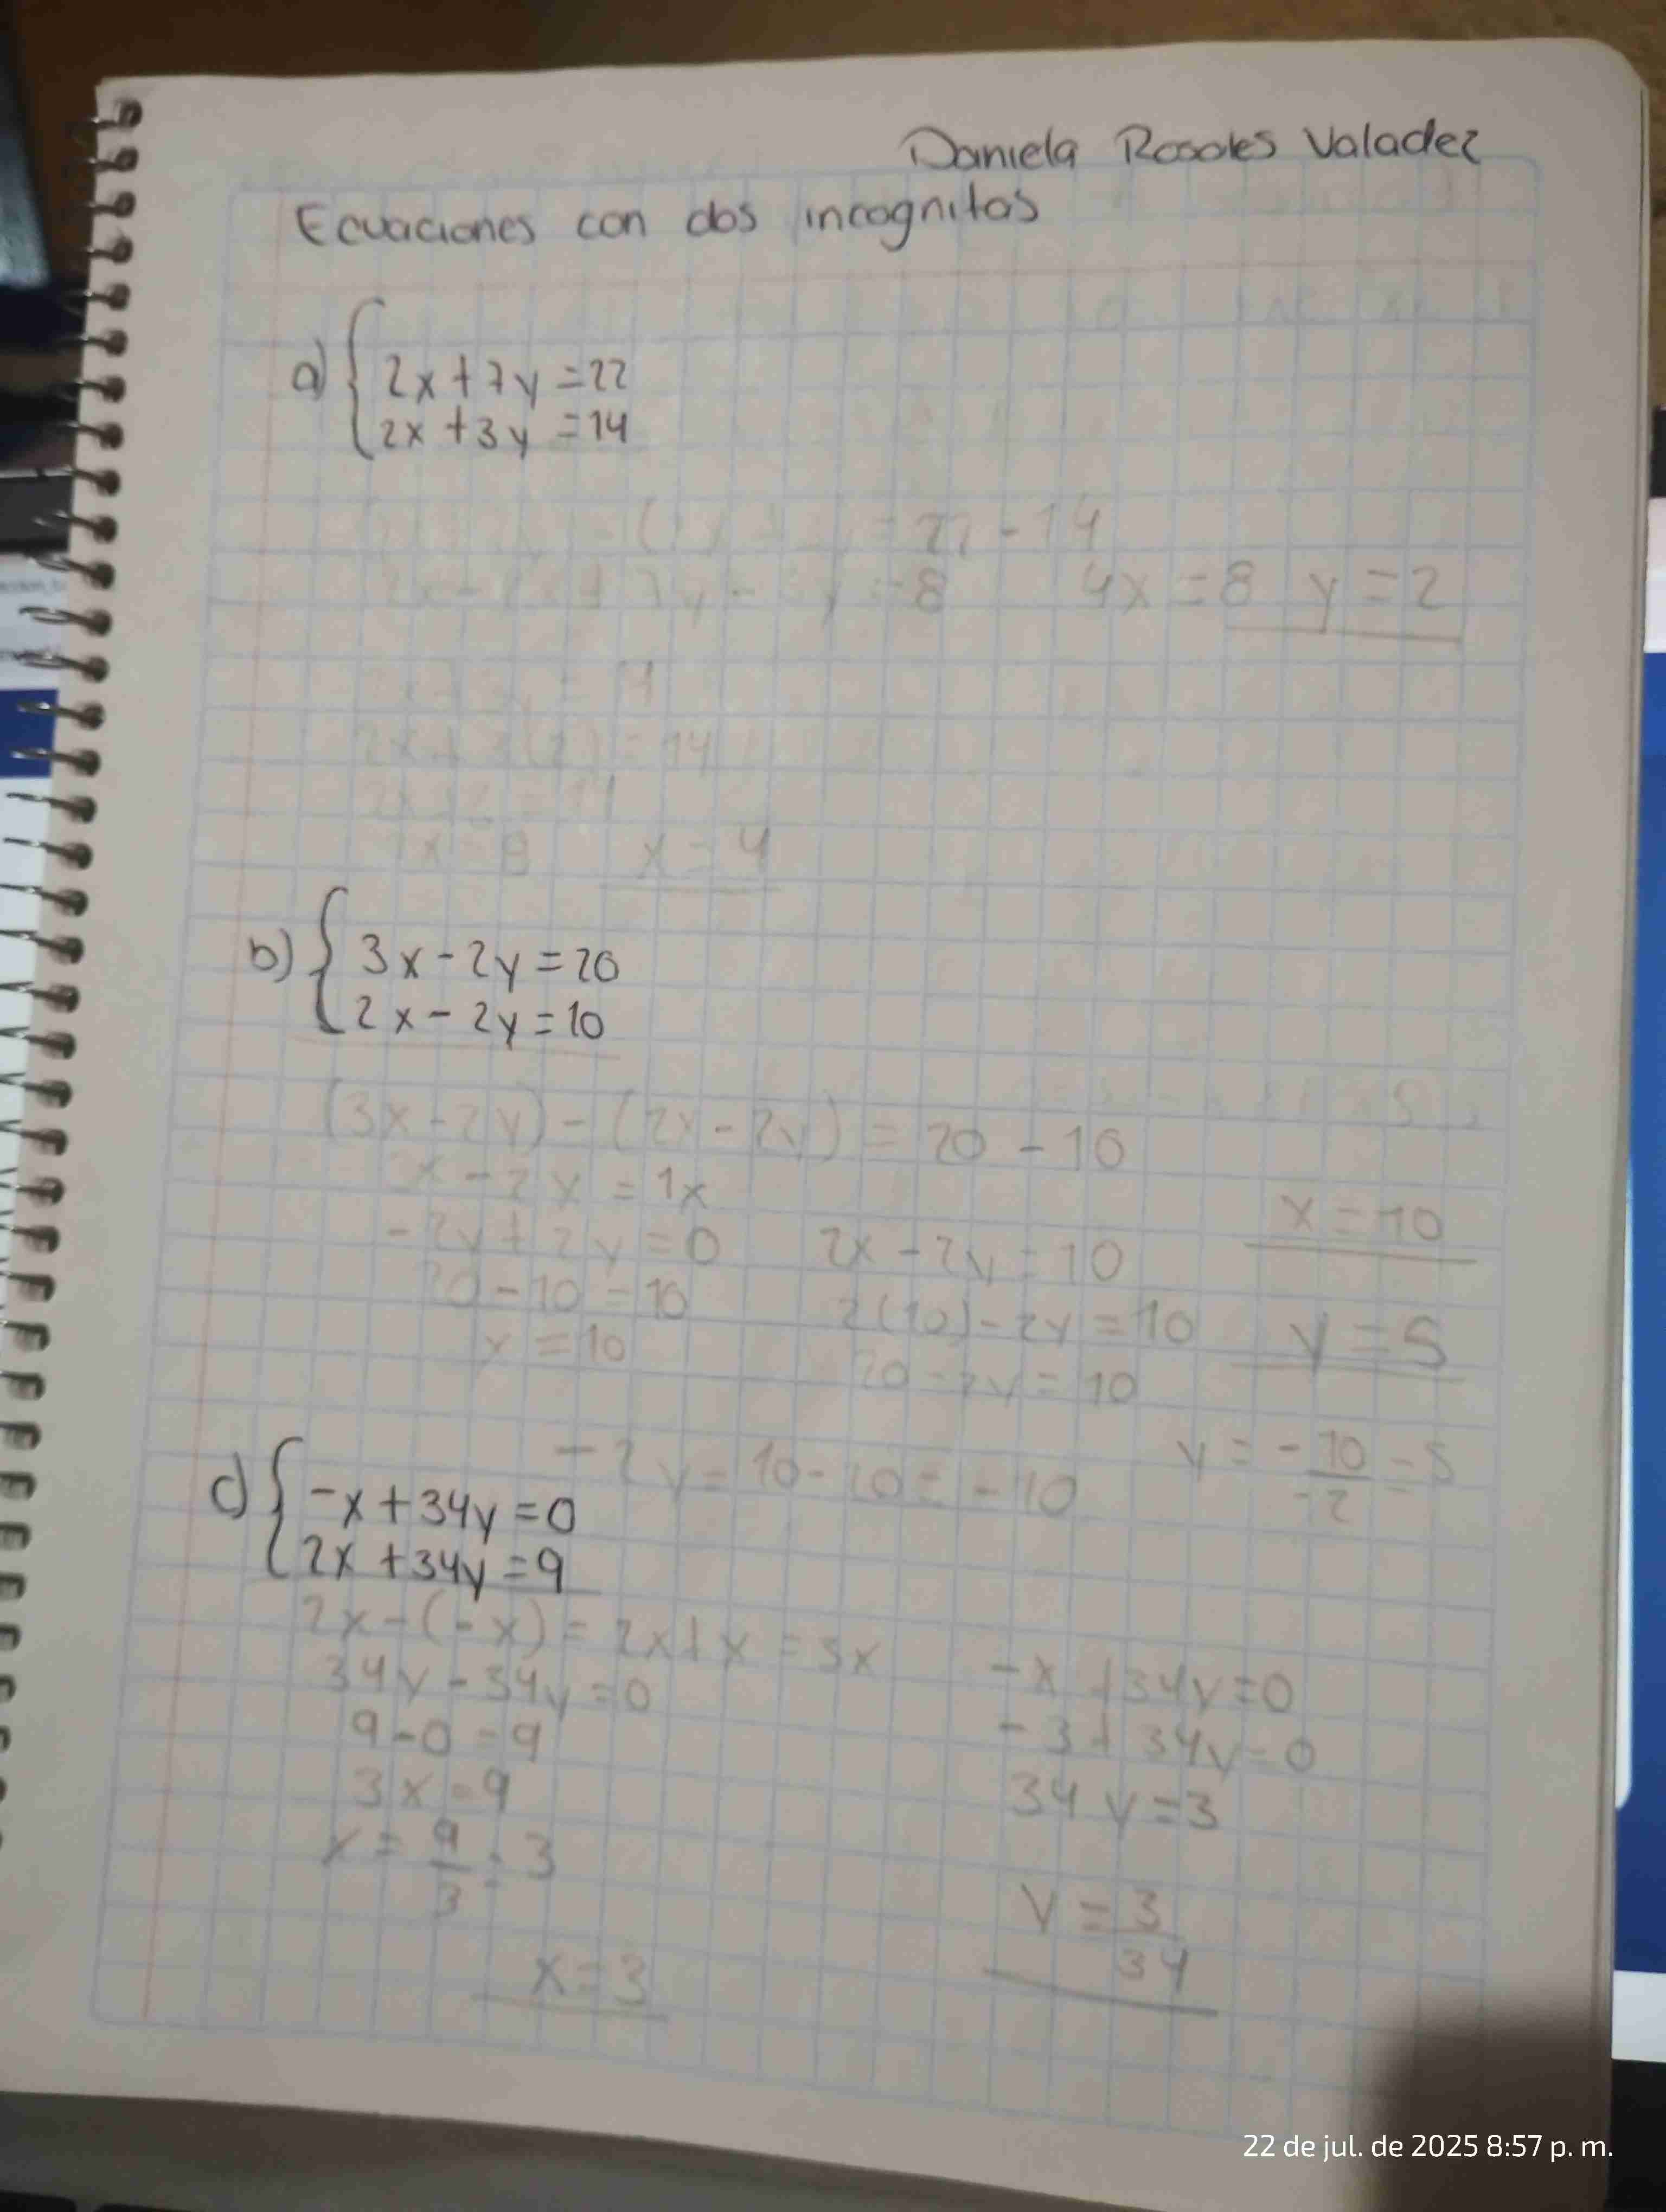 Daniela Rosales Valadez
Ecuaciones con dos incognitas
a) { 2x + 7y = 22
2x + 3y = 14
= 22 - 14
= 8 4x = 8 y = 2
2x + 3(2) = 14
x = 4
b) { 3x - 2y = 20
2x - 2y = 10
(3x - 2y) - (2x - 2y) = 20 - 10
x - 2x = 1x
x = 10
- 2y + 2y = 0 2x - 2y = 10
20 - 10 = 10 2(10) - 2y = 10 y = 5
x = 10 20 - 2y = 10
- 2y = 10 - 20 = - 10 y = -10/-2 = 5
c) { -x + 34y = 0
2x + 34y = 9
2x - (-x) = 2x + x = 3x
34y - 34y = 0 -x + 34y = 0
9 - 0 = 9 - 3 + 34y = 0
3x = 9 34y = 3
x = 9/3 = 3
y = 3/34
x = 3
22 de jul. de 2025 8:57 p. m.